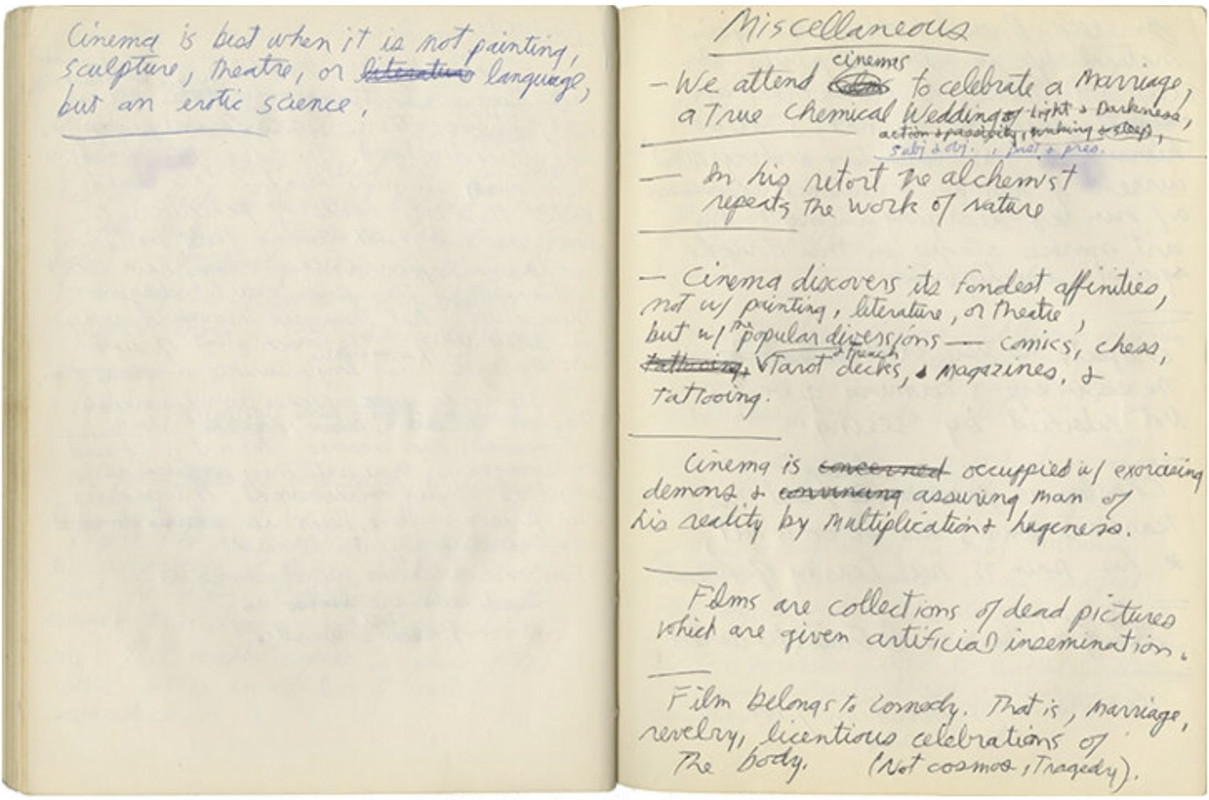 Cinema is best when it is not painting,
sculpture, theatre, or literature language,
but an erotic science.
Miscellaneous
cinemas
— We attend films to celebrate a Marriage,
a True Chemical Wedding of Light & Darkness,
action & passivity, waking & sleep,
subj & obj., past & pres.
— In his retort the alchemist
repeats the work of nature
— Cinema discovers its fondest affinities,
not w/ painting, literature, or theatre,
but w/ the popular diversions — comics, chess,
& French
tattooing, Tarot decks, magazines, &
Tattooing.
Cinema is concerned occuppied w/ exorcising
demons & convincing assuring man of
his reality by multiplication & hugeness.
Films are collections of dead pictures
which are given artificial insemination.
Film belongs to comedy. That is, marriage,
revelry, licentious celebrations of
The body. (Not cosmos, Tragedy).